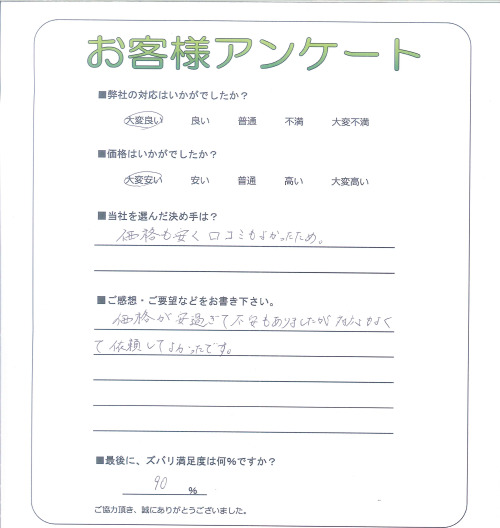 お客様アンケート
■弊社の対応はいかがでしたか？
大変良い 良い 普通 不満 大変不満
■価格はいかがでしたか？
大変安い 安い 普通 高い 大変高い
■当社を選んだ決め手は？
価格も安く口コミもよかったため。
■ご感想・ご要望などをお書き下さい。
価格が安過ぎて不安もありましたが
て依頼してよかったです。
■最後に、ズバリ満足度は何%ですか？
90 %
ご協力頂き、誠にありがとうございました。